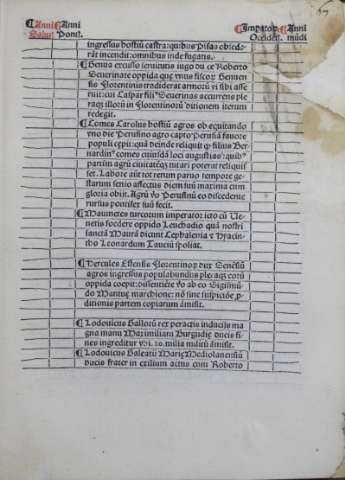 Anni Anni
Salut. Ponti.
Imperator. Anni
Occident. mūdi
ingressus hostiū castra: quibus Pisas obsede-
rāt incendit: omnibus inde fugatis.
excusso seruitutis iugo cū ce Roberto
Seuerinate oppida que
Florentinis tradiderat armis
rūt: cui Gaspar Seuerinas accurrens ple
raq illoū in Florentinoū ditionem iterum
redegit.
Comes Carolus hostiū agros obequitando
vno die Perusino agro capto Perusiā fauore
populi cepit: quā deinde reliquit filius Ber-
nardin comes eiusdē loci angustias: quib
partim agrū ciuitatēq mutari poterat reliquis
set. Labore aūt tot rerum paruo tempore ge-
starum senio affectus diem suū maxima cum
gloria obiit. Agrū do Perusinū eo discedente
rursus pontifex suū fecit.
Maumetes turcorum imperator icto cū Ue-
netis foedere oppido Leuchadio quā nostri
sanctā Maurā dicunt Cephalenia & Hyacin-
tho Leonardum Tauciū spoliat.
Hercules Estensis Florentinoq dux Senēsiū
agros ingressus populabundus pleraq eorū
oppida coepit: dissentiēte do ab eo Sigismū-
do Mantuę marchione: nō sine suspicióe p-
ditionis partem copiarum amisit.
Lodouicus Galloū rex peractis induciis ma
gna manu Maximiliani Burgūdię ducis fi-
nes ingreditur vbi. 20. milia militū amisit.
Lodouicus Galeatii Marię Mediolanensiū
ducis frater in exilium actus cum Roberto